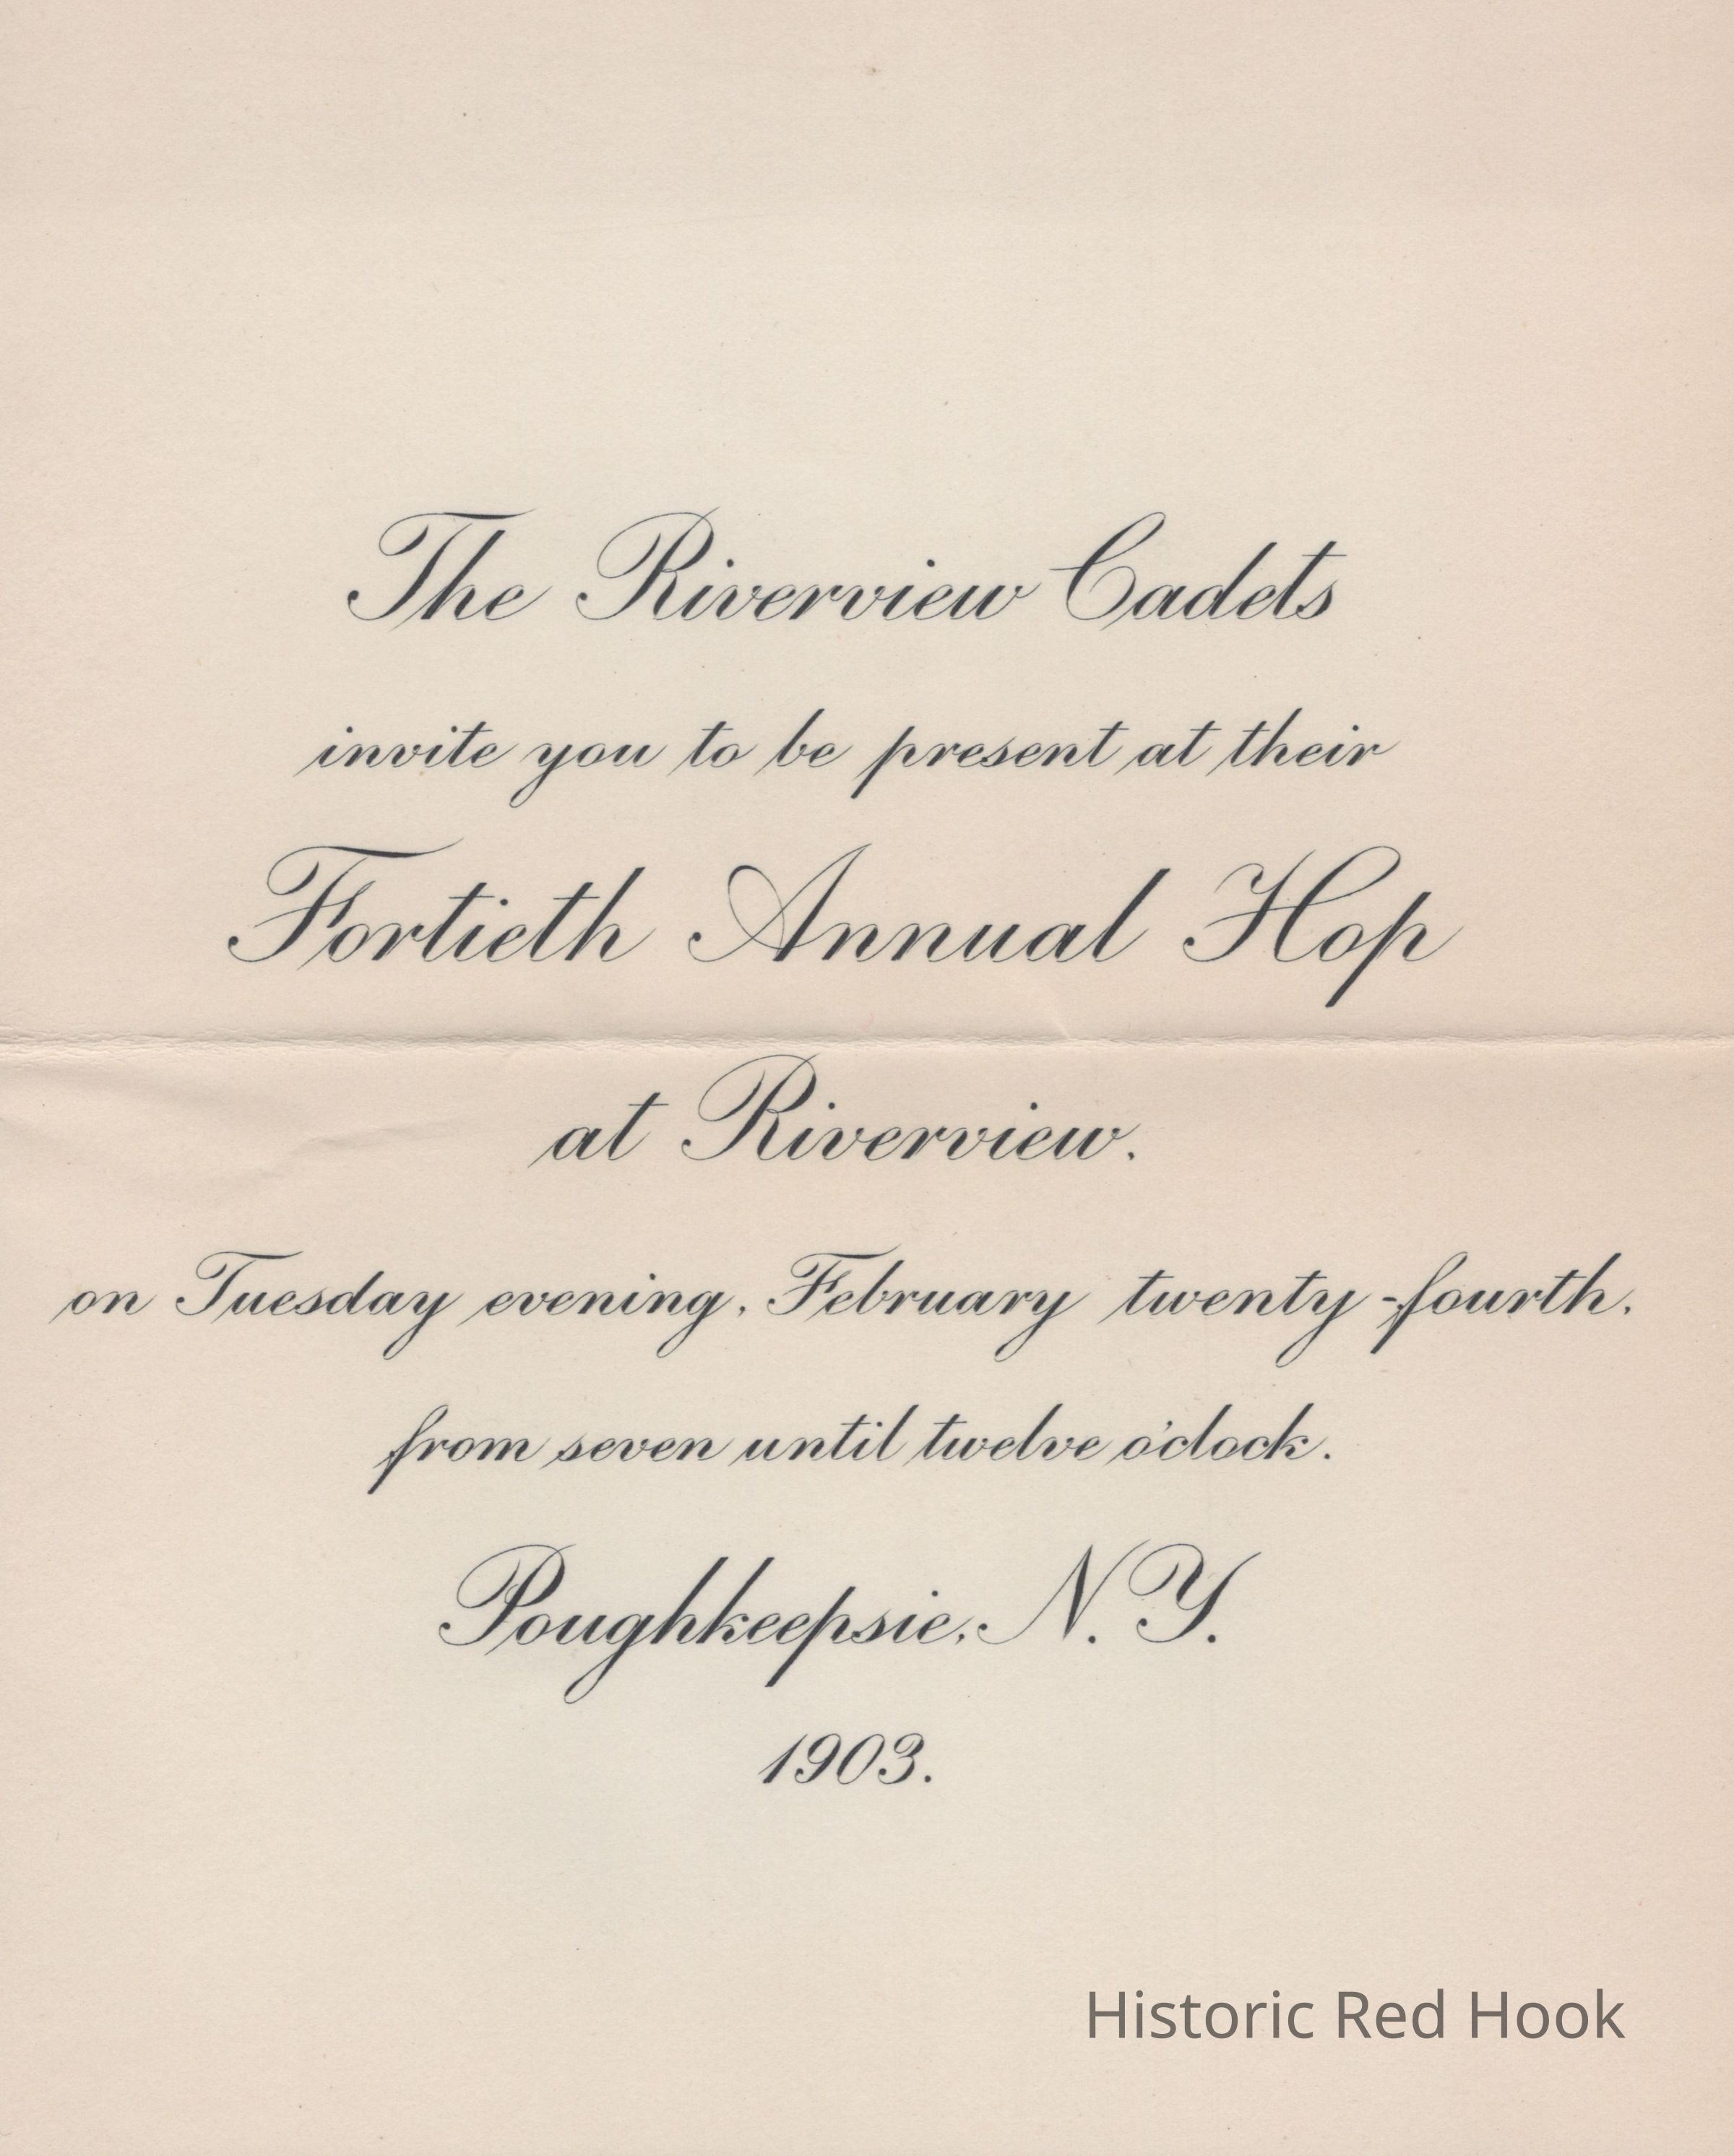 The Riverview Cadets
invite you to be present at their
Fortieth Annual Hop
at Riverview.
on Tuesday evening, February twenty-fourth,
from seven until twelve o'clock.
Poughkeepsie, N.Y.
1903.
Historic Red Hook